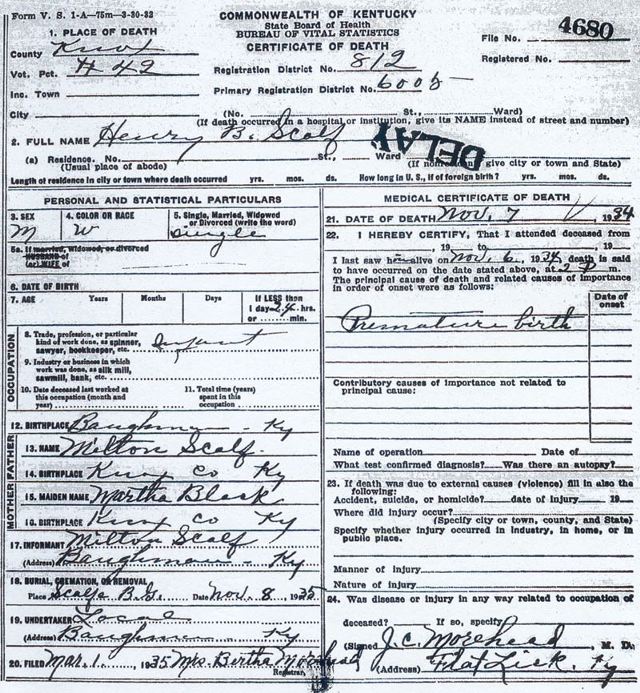 Form V. S. 1-A—75m—3-30-32
COMMONWEALTH OF KENTUCKY
State Board of Health
BUREAU OF VITAL STATISTICS
CERTIFICATE OF DEATH
File No. 4680
Registered No.
1. PLACE OF DEATH
County Knox
Vot. Pct. #42
Inc. Town
City
Registration District No. 812
Primary Registration District No. 6005
(No. St., Ward)
(If death occurred in a hospital or institution, give its NAME instead of street and number)
2. FULL NAME Henry B. Scalf
DELAY
(a) Residence. No. St., Ward
(Usual place of abode) (If nonresident, give city or town and State)
Length of residence in city or town where death occurred yrs. mos. ds. How long in U. S., if of foreign birth? yrs. mos. ds.
PERSONAL AND STATISTICAL PARTICULARS
3. SEX M
4. COLOR OR RACE W
5. Single, Married, Widowed or Divorced (write the word) Single
5a. If married, widowed, or divorced
HUSBAND of
(or) WIFE of
6. DATE OF BIRTH
7. AGE Years Months Days If LESS than
1 day 24 hrs.
or min.
OCCUPATION
8. Trade, profession, or particular
kind of work done, as spinner,
sawyer, bookkeeper, etc. Infant
9. Industry or business in which
work was done, as silk mill,
sawmill, bank, etc.
10. Date deceased last worked at
this occupation (month and
year)
11. Total time (years)
spent in this
occupation
12. BIRTHPLACE Baughman - Ky
FATHER
13. NAME Milton Scalf.
14. BIRTHPLACE Knox Co Ky
MOTHER
15. MAIDEN NAME Martha Black
16. BIRTHPLACE Knox Co Ky
17. INFORMANT Milton Scalf
(Address) Baughman - Ky
18. BURIAL, CREMATION, OR REMOVAL
Place Scalfs B.G. Date Nov. 8 1935
19. UNDERTAKER Local
(Address) Baughman Ky
20. FILED Mar. 1 1935 Mrs. Bertha Morehead
Registrar.
MEDICAL CERTIFICATE OF DEATH
21. DATE OF DEATH Nov. 7 1934
22. I HEREBY CERTIFY, That I attended deceased from
, 19 to , 19
I last saw h alive on Nov. 6, 1934, death is said
to have occurred on the date stated above, at 2 P m.
The principal cause of death and related causes of importance
in order of onset were as follows:
Date of
onset
Premature birth
Contributory causes of importance not related to
principal cause:
Name of operation Date of
What test confirmed diagnosis? Was there an autopsy?
23. If death was due to external causes (violence) fill in also the
following:
Accident, suicide, or homicide? date of injury 19
Where did injury occur?
(Specify city or town, county, and State)
Specify whether injury occurred in industry, in home, or in
public place.
Manner of injury
Nature of injury
24. Was disease or injury in any way related to occupation of
deceased? If so, specify
(Signed J. C. Morehead, M. D.
(Address) Flat Lick, Ky